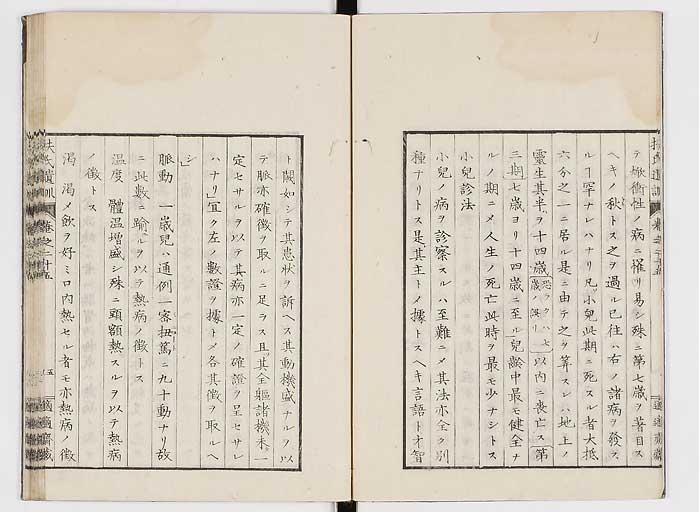 テ焮衝性ノ病ニ罹リ易シ殊ニ第七歳ヲ著目ス
ヘキノ秋トス之ヲ過ル已往ハ右ノ諸病ヲ發ス
ルヿ罕ナレハナリ凡小兒此期ニ死スル者大抵
六分之一ニ居ル是ニ由テ之ヲ算スレハ地上ノ
靈生其半ヲ十四歳恐ラクハ七歳ノ誤リ以内ニ喪亡ス「第
三期七歳ヨリ十四歳ニ至ル兒齡中最モ健全ナ
ルノ期ニメ人生ノ死亡此時ヲ最モ少ナシトス
小兒診法
小兒ノ病ヲ診察スルハ至難ニメ其法亦全ク別
種ナリトス是其主トメ據トスヘキ言語ト才智
ト闕如シテ其患狀ヲ訴ヘス其動機盛ナルヲ以
テ脈亦確徴ヲ取ルニ足ラス且其全軀諸機未一
定セサルヲ以テ其病亦一定ノ確證ヲ呈セサレ
ハナリ」宜ク左ノ數證ヲ據トメ各其徴ヲ取ルヘ
シ」
脈動 一歳兒ハ通例一密扭篤ニ九十動ナリ故
ニ此數ニ踰ルヲ以テ熱病ノ徴トス
溫度 體溫増盛シ殊ニ頭額熱スルヲ以テ熱病
ノ徴トス
渇 渇メ飲ヲ好ミ口内熱セル者モ亦熱病ノ徴
扶氏遺訓 卷之二十五 五 適適齋藏